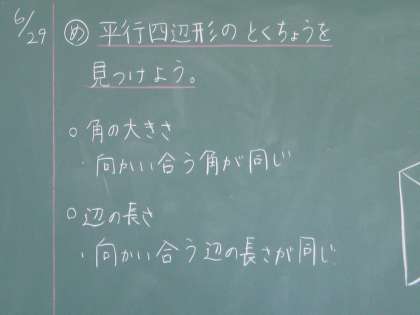 6/29
め 平行四辺形のとくちょうを
見つけよう。
○ 角の大きさ
・向かい合う角が同じ
○ 辺の長さ
・向かい合う辺の長さが同じ